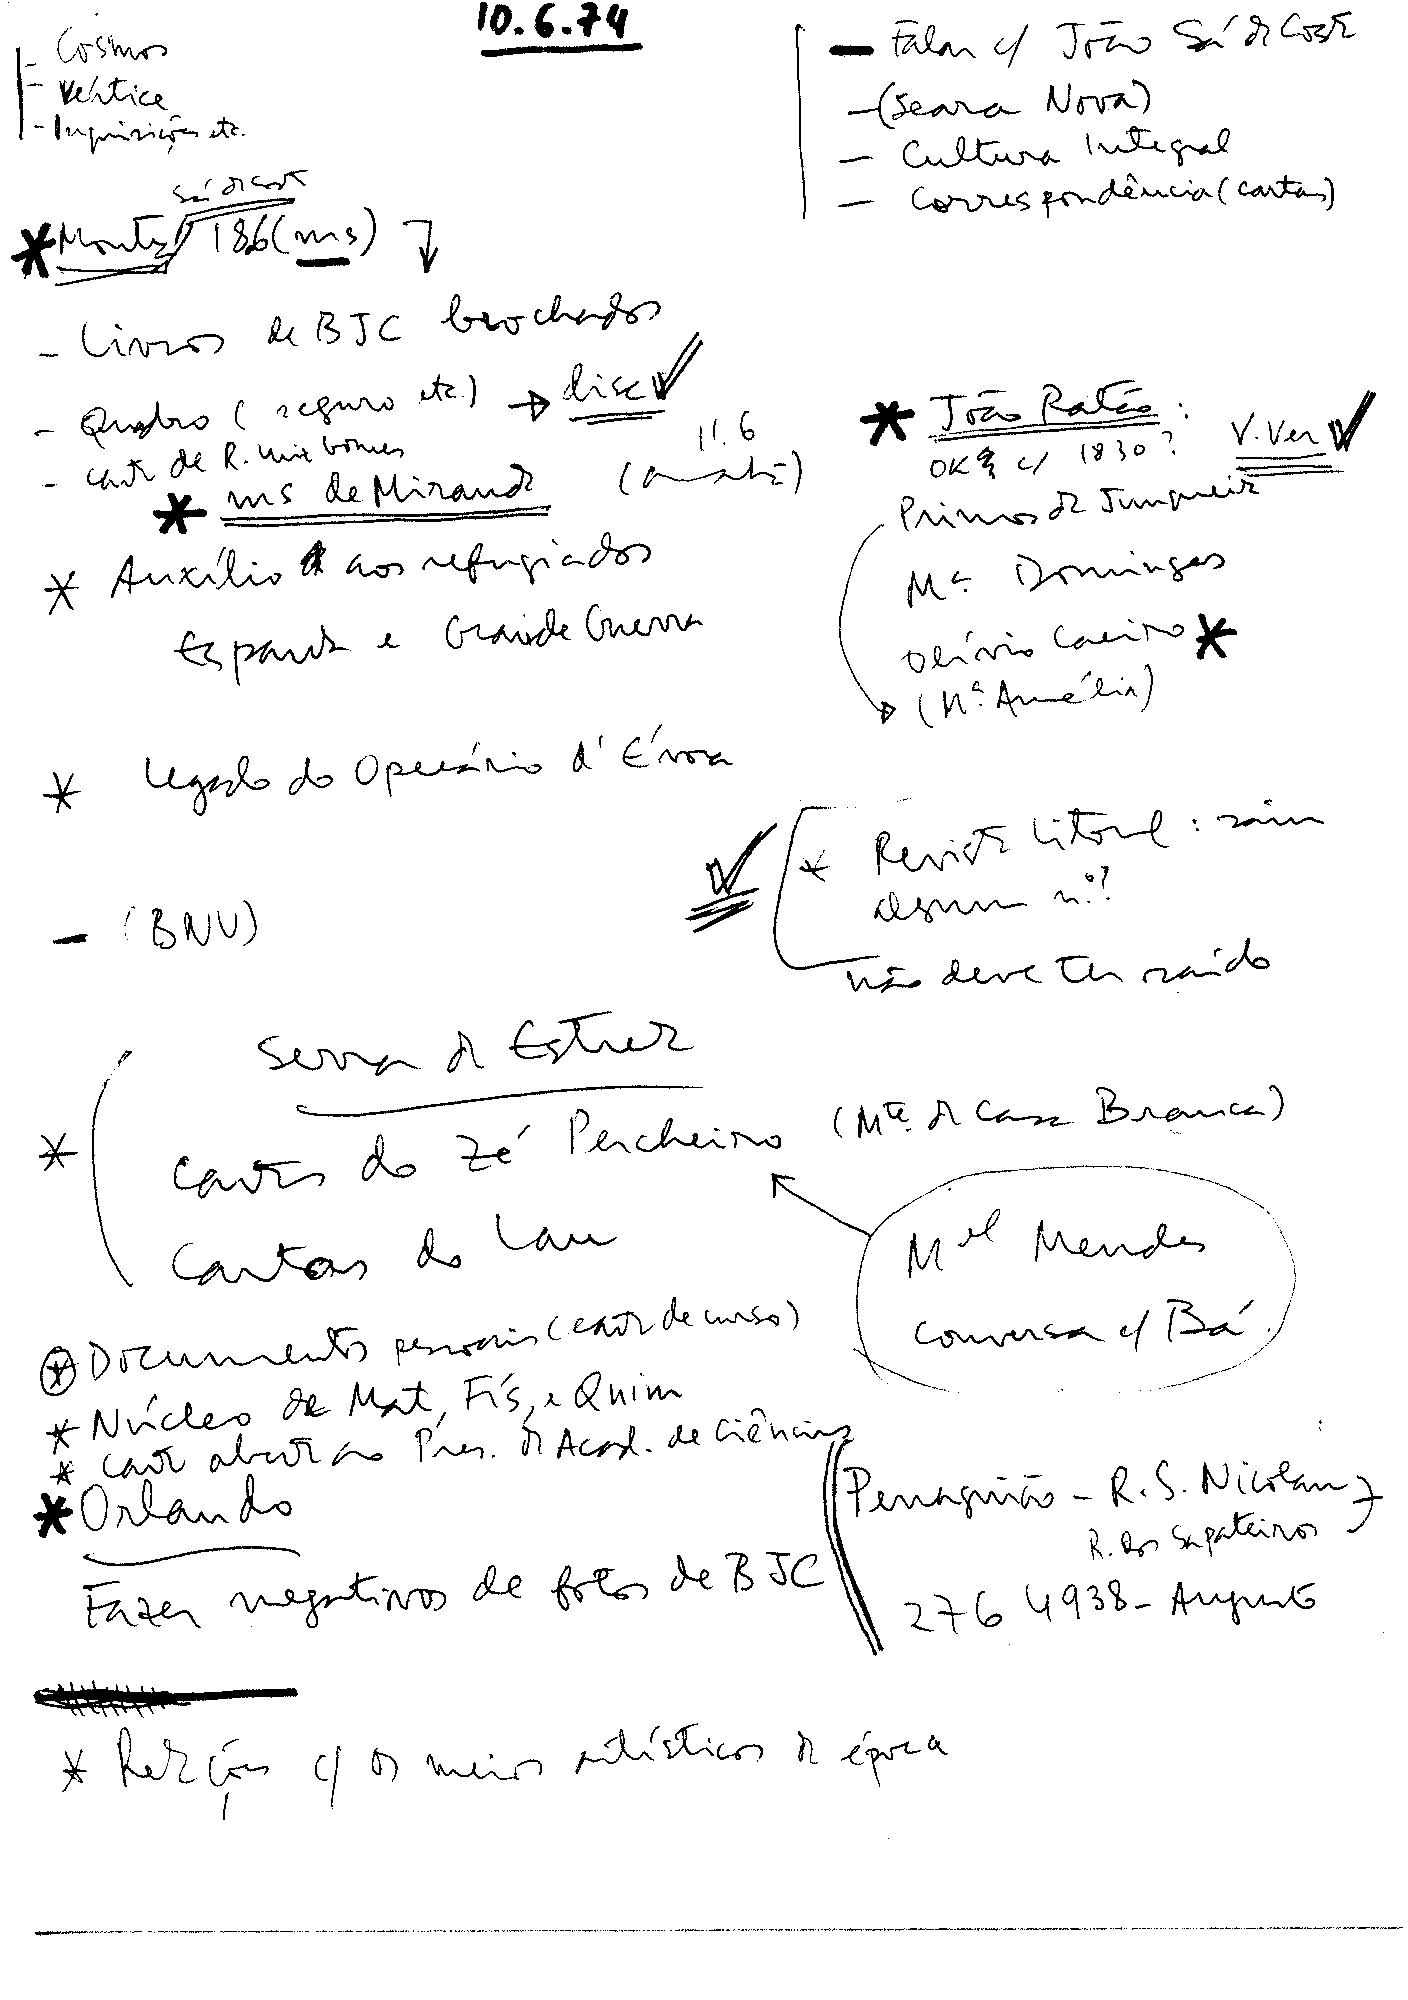 10.6.74
- Cosmos
- Vértice
- Inquirições etc.
- Falar c/ João Sá da Costa
- (Seara Nova)
- Cultura Integral
- Correspondência (cartas)
Sá da Costa
* 186 (ms)
- Livros de BJC brochados
- Quadro (seguro etc.) → disc
- Carta de R. Luís Gomes
* ms de Miranda
11.6
(amanhã)
* João Ratão:
OK c/ 1830?
V. Ver
Primos da Junqueira
Mª Domingas
Olívio Caeiro *
(Mª Amélia)
* Auxílio aos refugiados
Espanha e Grande Guerra
* Legado do Operário d'Évora
* Revista Litoral: saiu
algum nº?
não deve ter saído
- (BNU)
Serra da Estrela
* Cartas do Zé Percheiro (Mte. da Casa Branca)
Cartas do Lau
Mel Mendes
conversa c/ Bá.
* Documentos pessoais (carta de curso)
* Núcleo de Mat, Fís, e Quim
* Carta aberta ao Pres. da Acad. de Ciências
* Orlando
Fazer negativos de fotos de BJC
Penaguião - R. S. Nicolau
R. dos Sapateiros
276 4938 - Augusto
* Relações c/ os meios artísticos da época